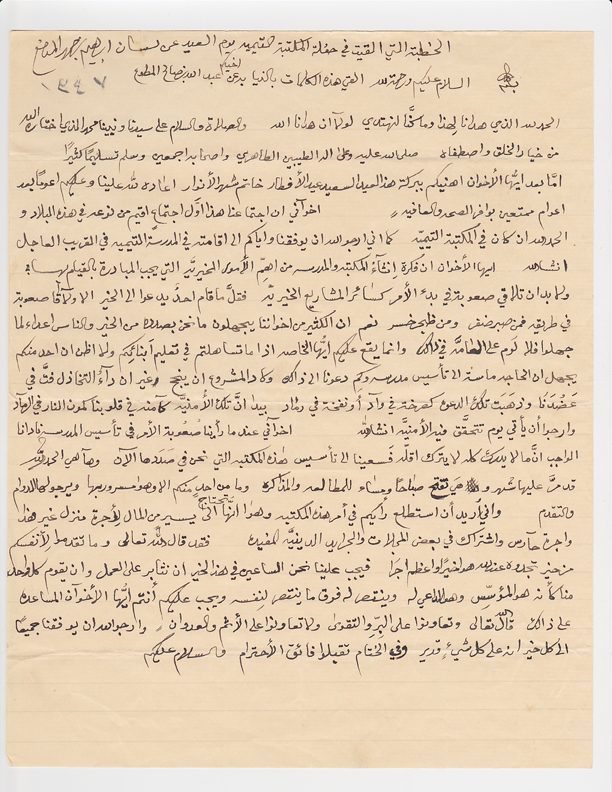 الخطبة التي القيت في حفلة المكتبة التيمية يوم العيد عن لسان ابراهيم
السلام عليكم ورحمة الله القي هذه الكلمات بالنيابة عن عبد الله بن صالح المطوع
١٣٤٧
الحمد لله الذي هدانا لهذا وما كنا لنهتدي لولا ان هدانا الله والصلاة والسلام على سيدنا ونبينا محمد الذي اختاره الله
من خيار الخلق واصطفاه صلى الله عليه وعلى اله الطيبين الطاهرين واصحابه اجمعين وسلم تسليمًا كثيرًا
امّا بعد ايّها الأخوان اهنيكم ببركة هذا العيد السعيد عيد الأفطار خاتم شهر الأنوار اعاده الله علينا وعليكم اعومًا بعد
اعوام ممتعين بوافر الصحه والعافيه اخوآني ان اجتماعنا هذا أوّل اجتماع اقيم من نوعه في هذه البلاد و
الحمد لله ان كان في المكتبة التيميّة كما اني ارجو الله ان يوفقنا واياكم الى اقامته في المدرسة التيميه في القريب العاجل
انشالله ايها الأخوان ان فكرة انشآء المكتبه والمدرسه من اهمّ الأمور الخيريّه التي يجب المبادرة بالقيام بها
ولا بد ان تلاقي صعوبة في بدء الأمر كسائر المشاريع الخيريّه فقلّ ما قام احدٌ يدعوا الى الخير الا ولاقا صعوبة
في طريقه فمن صبر ومن خسر نعم ان الكثير من اخواننا يجهلون ما نحن بصدده من الخير والناس اعداء لما
جهلوا فلا لوم على العامّة في ذالك وانما يقع عليكم ايّها الخاصه اذا ما تساهلتم في تعليم أبنائكم ولا اظن ان احد منكم
يجهل ان الحاجه ماسة الى تأسيس مدرسه وكم دعونا الى ذالك وكاد المشروع ان ينجح غير ان دآء التخاذل فتّ في
عضدنا وذهبت تلك الدعوه كصرخة في وآدٍ أو نفخة في رماد بيد انّ تلك الأمنيّه كآمنه في قلوبنا كمون النار في الرماد
وارجوا أن يأتي يوم تتحقق فيه الأمنيّه انشالله اخوآني عندما رأينا صعوبة الأمر في تأسيس المدرسه نادانا
الواجب انّ ما لا يدرك كله لا يترك اقلّه فسعينا الى تأسيس هذه المكتبه التي نحن في صددها الآن وها هي الحمد لله
قد مرّ عليها شهر و هي تفتح صباحًا ومساء للمطالعه والمذاكره وما من احد منكم الا وهو مسرور بها ويرجو لها الدوام
والتقدم واني أريد أن استطلع رأيكم في أمر هذه المكتبه وهو انّها تحتاج الى يسير من المال لأجرة منزل غير هذا
واجرة حآرس واشتراك في بعض المجلات والجرايد الدينيّه المفيده فقد قال الله تعالى وما تقدموا لأنفسكم
من خير تجدوه عند الله هو خيرًا واعظم اجرًا فيجب علينا نحن الساعين في هذا الخير ان نثابر على العمل وان يقوم كل واحد
منا كأنه هو المؤسّس وهو الداعي له وينتصر له فوق ما ينتصر لنفسه ويجب عليكم أنتم ايّها الأخوآن المساعده
على ذالك قال الله تعالى وتعاونوا على البرّ والتقوى ولا تعاونوا على الأثم والعدوان وارجو الله ان يوفقنا جميعًا
الى كل خير انه على كل شيءٍ قدير وفي الختام تقبلوا فائق الأحترام والسلام عليكم